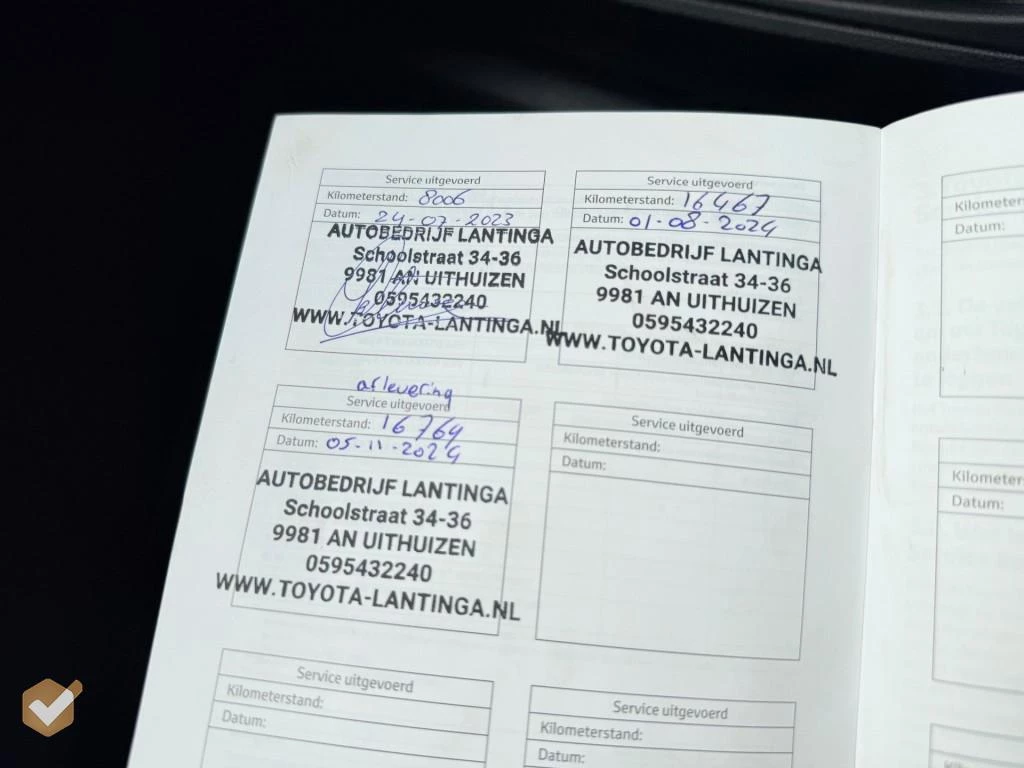 Service uitgevoerd
Kilometerstand: 8006
Datum: 24-07-2023
AUTOBEDRIJF LANTINGA
Schoolstraat 34-36
9981 AN UITHUIZEN
0595432240
WWW.TOYOTA-LANTINGA.NL
Service uitgevoerd
Kilometerstand: 16467
Datum: 01-08-2024
AUTOBEDRIJF LANTINGA
Schoolstraat 34-36
9981 AN UITHUIZEN
0595432240
WWW.TOYOTA-LANTINGA.NL
aflevering
Service uitgevoerd
Kilometerstand: 16764
Datum: 05-11-2024
AUTOBEDRIJF LANTINGA
Schoolstraat 34-36
9981 AN UITHUIZEN
0595432240
WWW.TOYOTA-LANTINGA.NL
Service uitgevoerd
Kilometerstand:
Datum:
Service uitgevoerd
Kilometerstand:
Datum:
Service uitgevoerd
Kilometerstand:
Datum:
Kilometerst
Datum:
Kilometer
Datum: